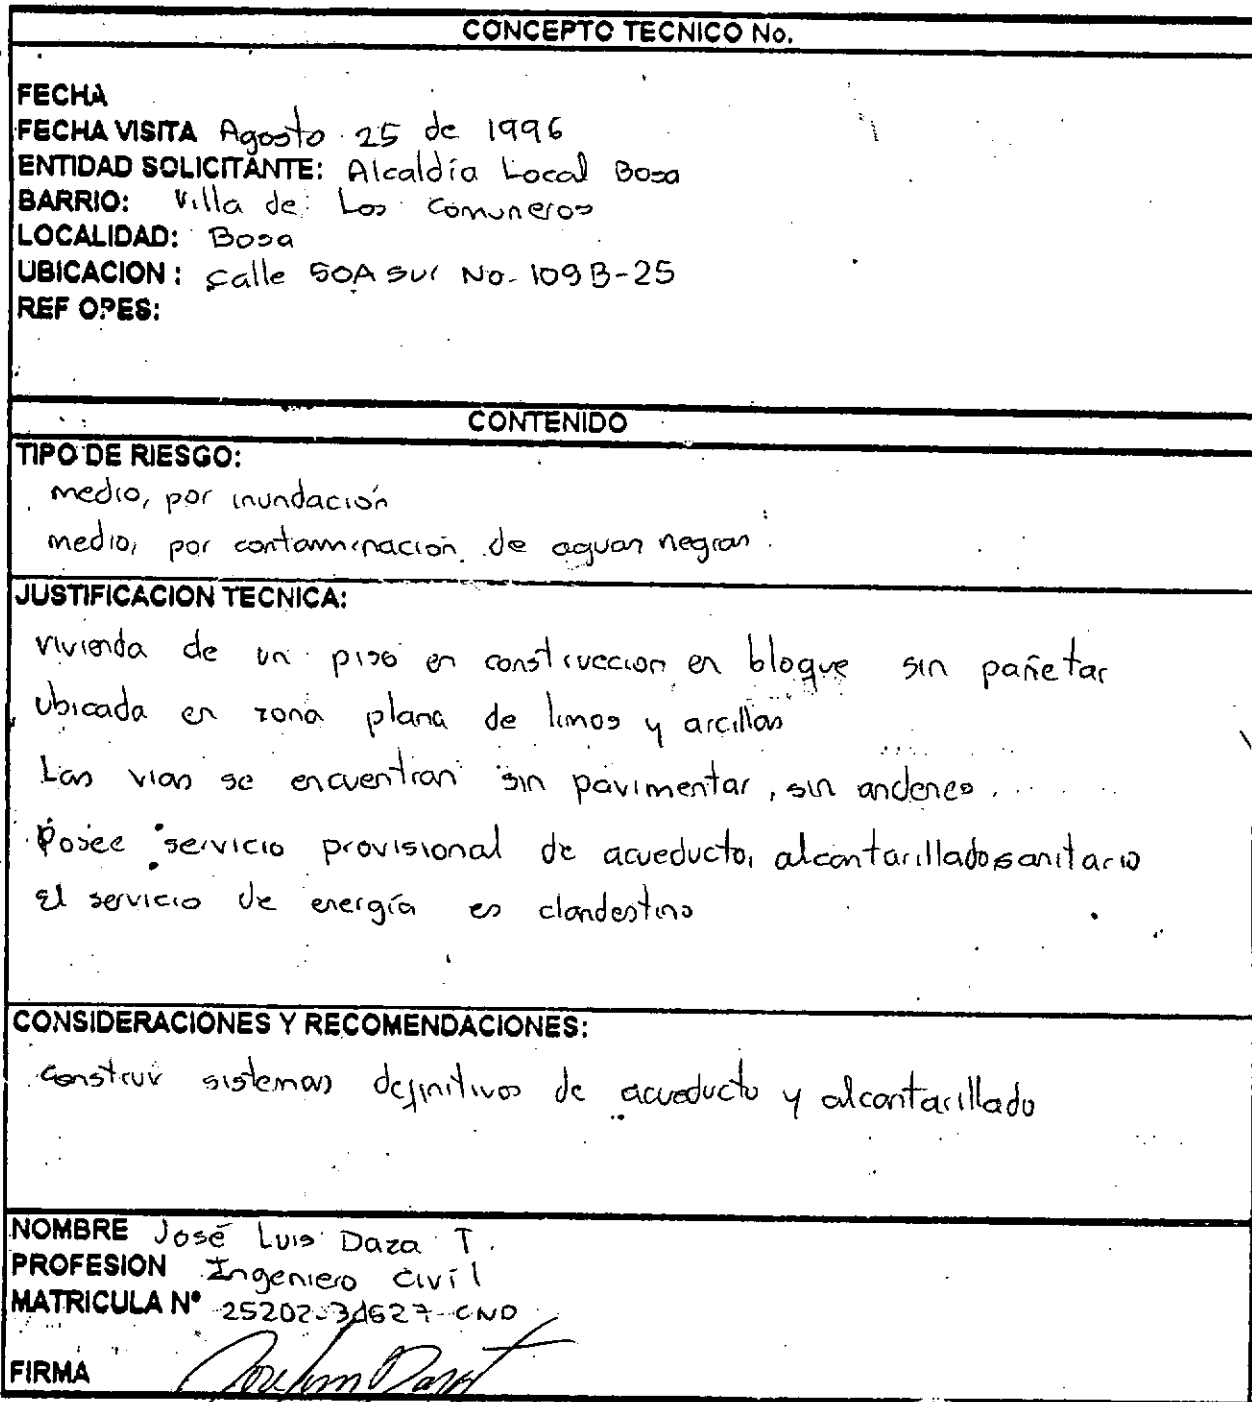 CONCEPTO TECNICO No.
FECHA
FECHA VISITA Agosto 25 de 1996
ENTIDAD SOLICITANTE: Alcaldía Local Bosa
BARRIO: Villa de Los Comuneros
LOCALIDAD: Bosa
UBICACION: calle 50A sur No. 109B-25
REF OPES:
CONTENIDO
TIPO DE RIESGO:
medio, por inundación
medio, por contaminación de aguas negras
JUSTIFICACION TECNICA:
vivienda de un piso en construccion en bloque sin pañetar
ubicada en zona plana de limos y arcillas
Las vias se encuentran sin pavimentar, sin andenes
Posee servicio provisional de acueducto, alcantarillado sanitario
El servicio de energía es clandestino
CONSIDERACIONES Y RECOMENDACIONES:
construir sistemas definitivos de acueducto y alcantarillado
NOMBRE José Luis Daza T.
PROFESION Ingeniero civíl
MATRICULA N°
FIRMA